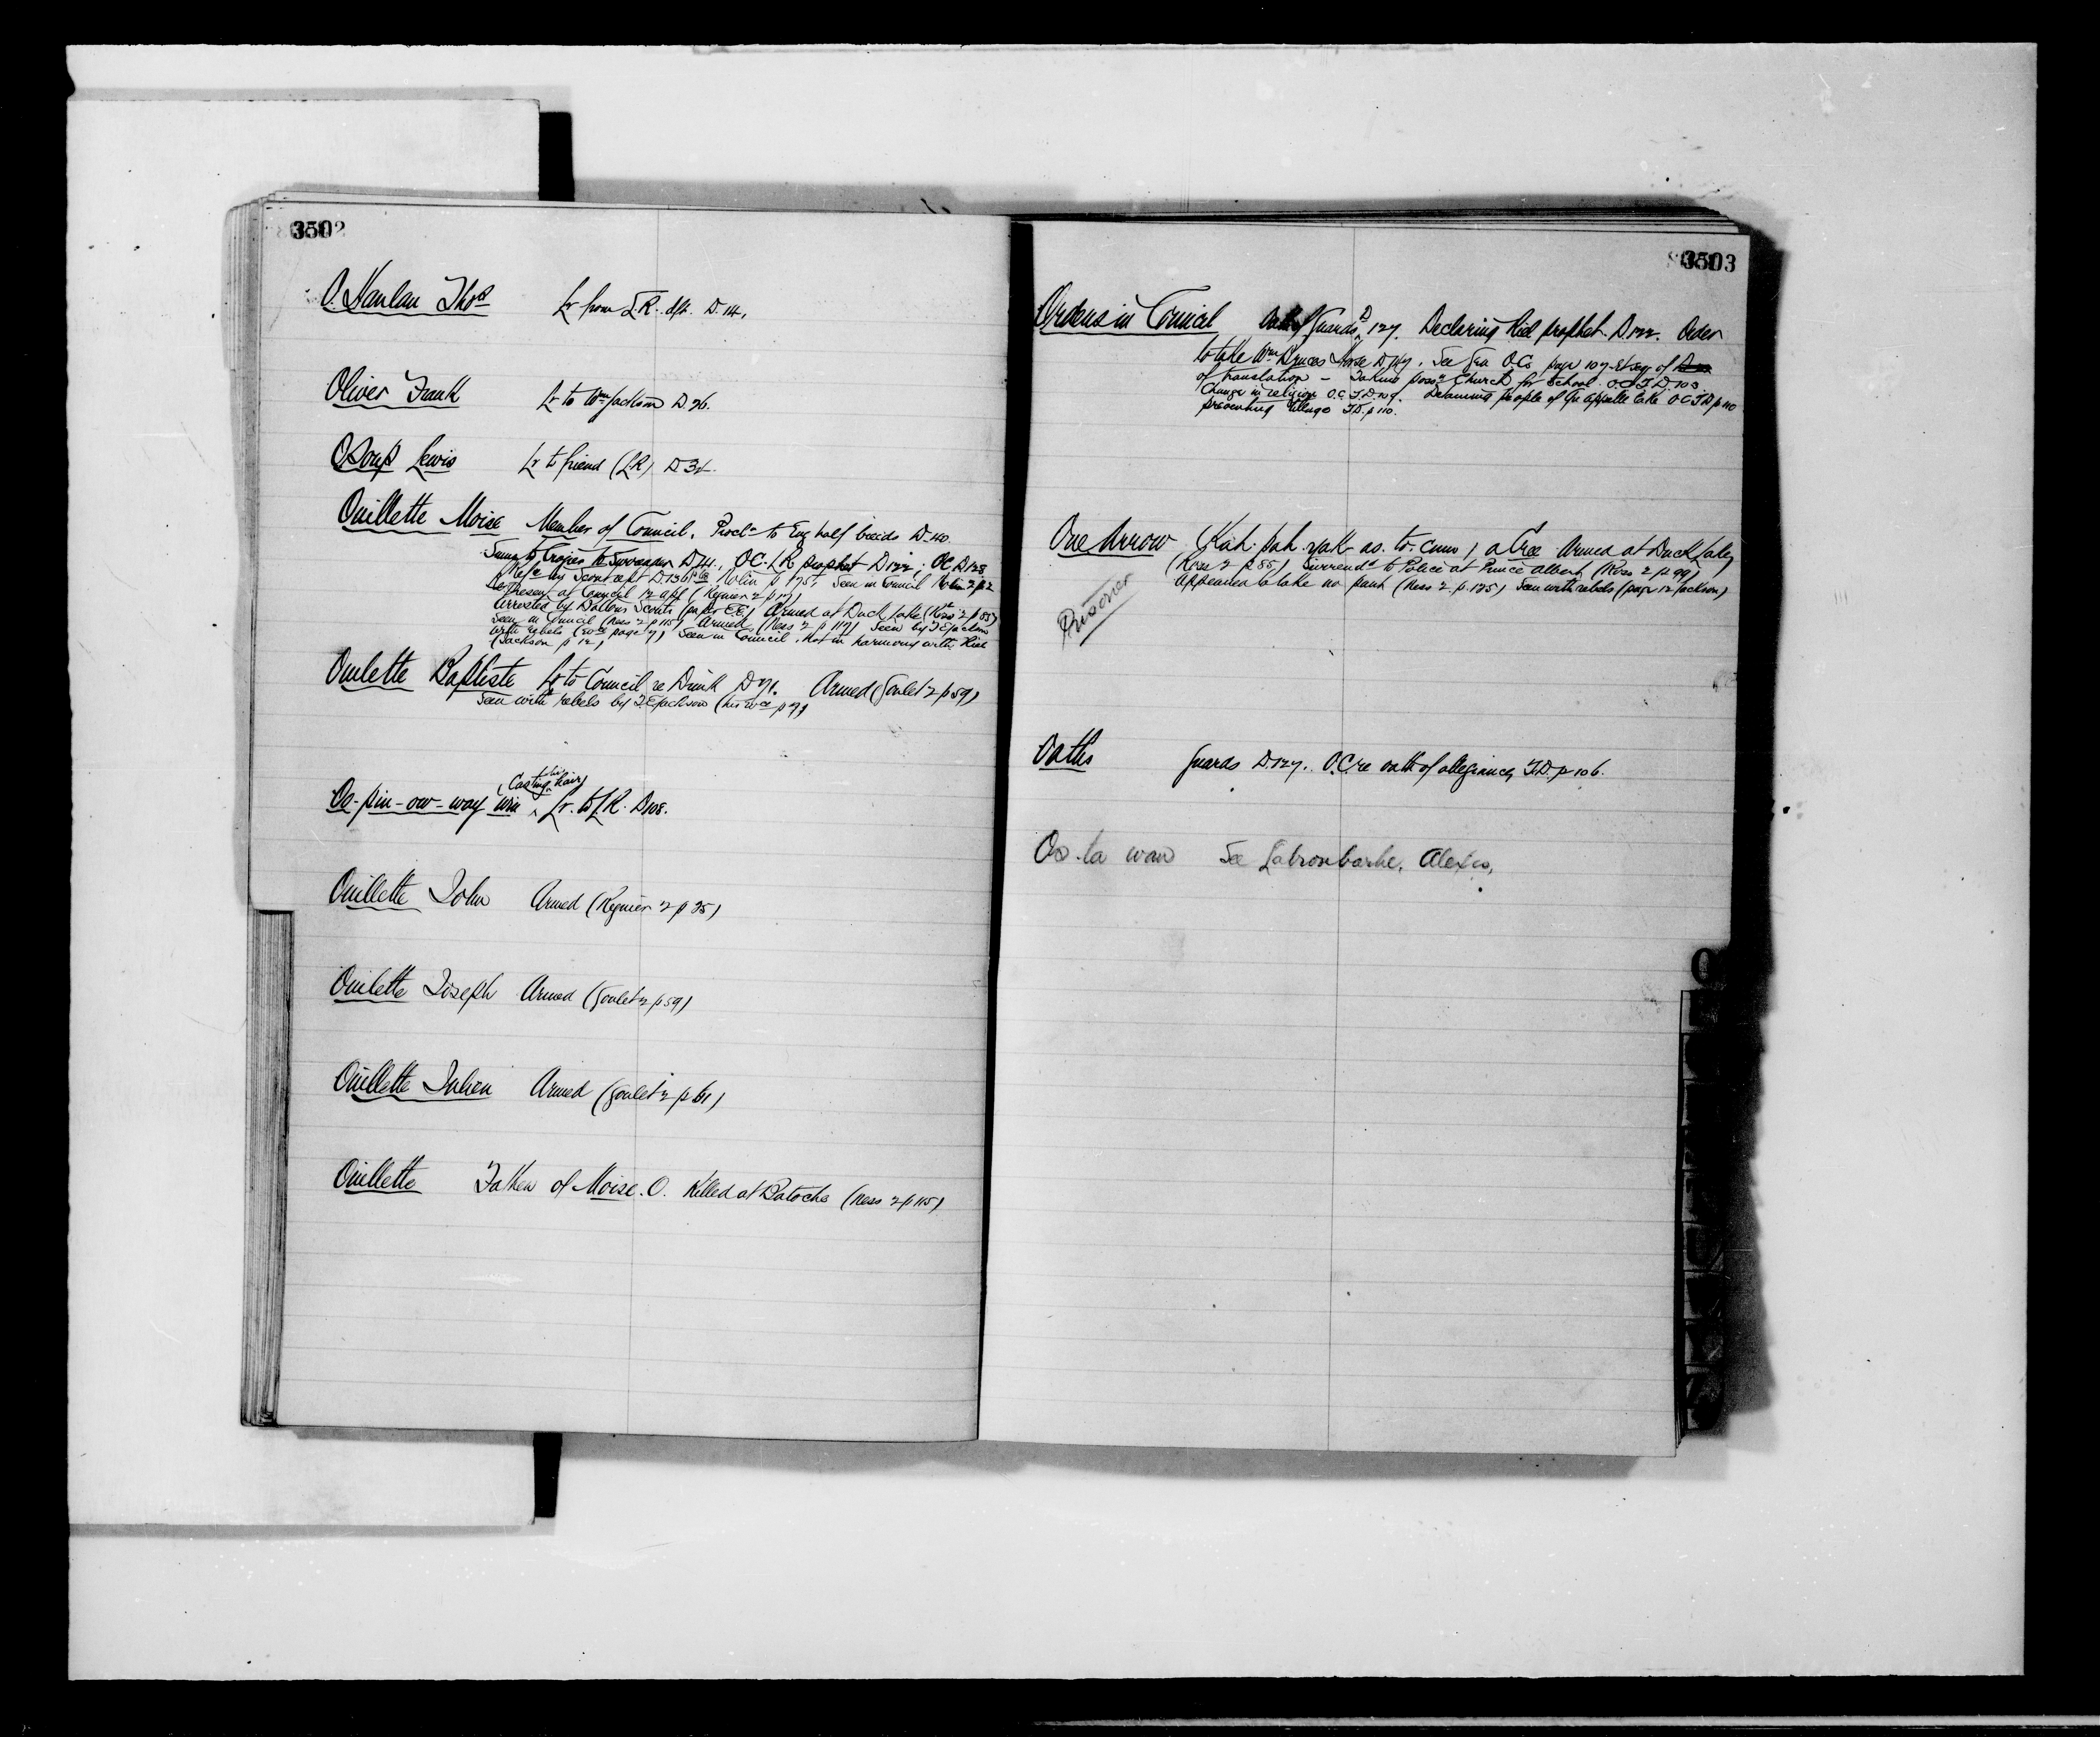 3502
O'Hanlan Thos Lr from L.R. dft. D. 14.
Oliver Frank Lr to Wm Jackson D. 26.
OSoup Lewis Lr to friend (L.R) D 34.
Ouillette Moise Member of Council. Procln to Eng half breeds D. 40.
D 44., OC. LR prophet D 122; OC D 128
Seen in Council Nolin 2 p 2
present at Council 12 apl (Regnier 2 p 17)
Arrested by Boltons Scouts (paper E.E.) Armed at Duck Lake (Ross 2 p 85)
Seen in Council (Ness 2 p 115) Armed (Ness 2 p 117) Seen by T E Jackson
with rebels (evce page 7) Seen in Council. Not in harmony with Riel
(Jackson p 12)
Ouilette Baptiste Lr to Council re Drink D 71. Armed (Goulet 2 p 59)
Seen with rebels by T E Jackson (his evce p 7)
(Casting his hair)
Oo-pin-ow-way win ^ Lr. to L R. D 108.
Ouillette John Armed (Regnier 2 p 35)
Ouilette Joseph Armed (Goulet 2 p 59)
Ouillette Julien Armed (Goulet 2 p 61)
Ouillette Father of Moise. O. Killed at Batoche (Ness 2 p 115)
3503
Orders in Council Oath of Guards D 127. Declaring Riel prophet. D 122. Order
to take Wm Bruces Horse See Gen O.Cs page 107 et seq of
of translation - Taking possn Church for School. O.C T.D. 103.
Change in religion O.C. T.D. 109. people of Qu'appelle Lake O C T.D p 110
preventing pillage T.D. p 110.
One Arrow (Kah. pah. yak- as. to. cum) a Cree Armed at Duck Lake
(Ross 2 p 85) Surrendd to Police at Prince Albert (Ross 2 p 99)
Appeared to take no part (Ness 2 p. 125) Seen with rebels (page 12 Jackson)
Prisoner
Oaths Guards D. 127. O.C. re oath of allegiance T.D. p 106.
Oo-la waw See Labrombarbe, Alexis,
O